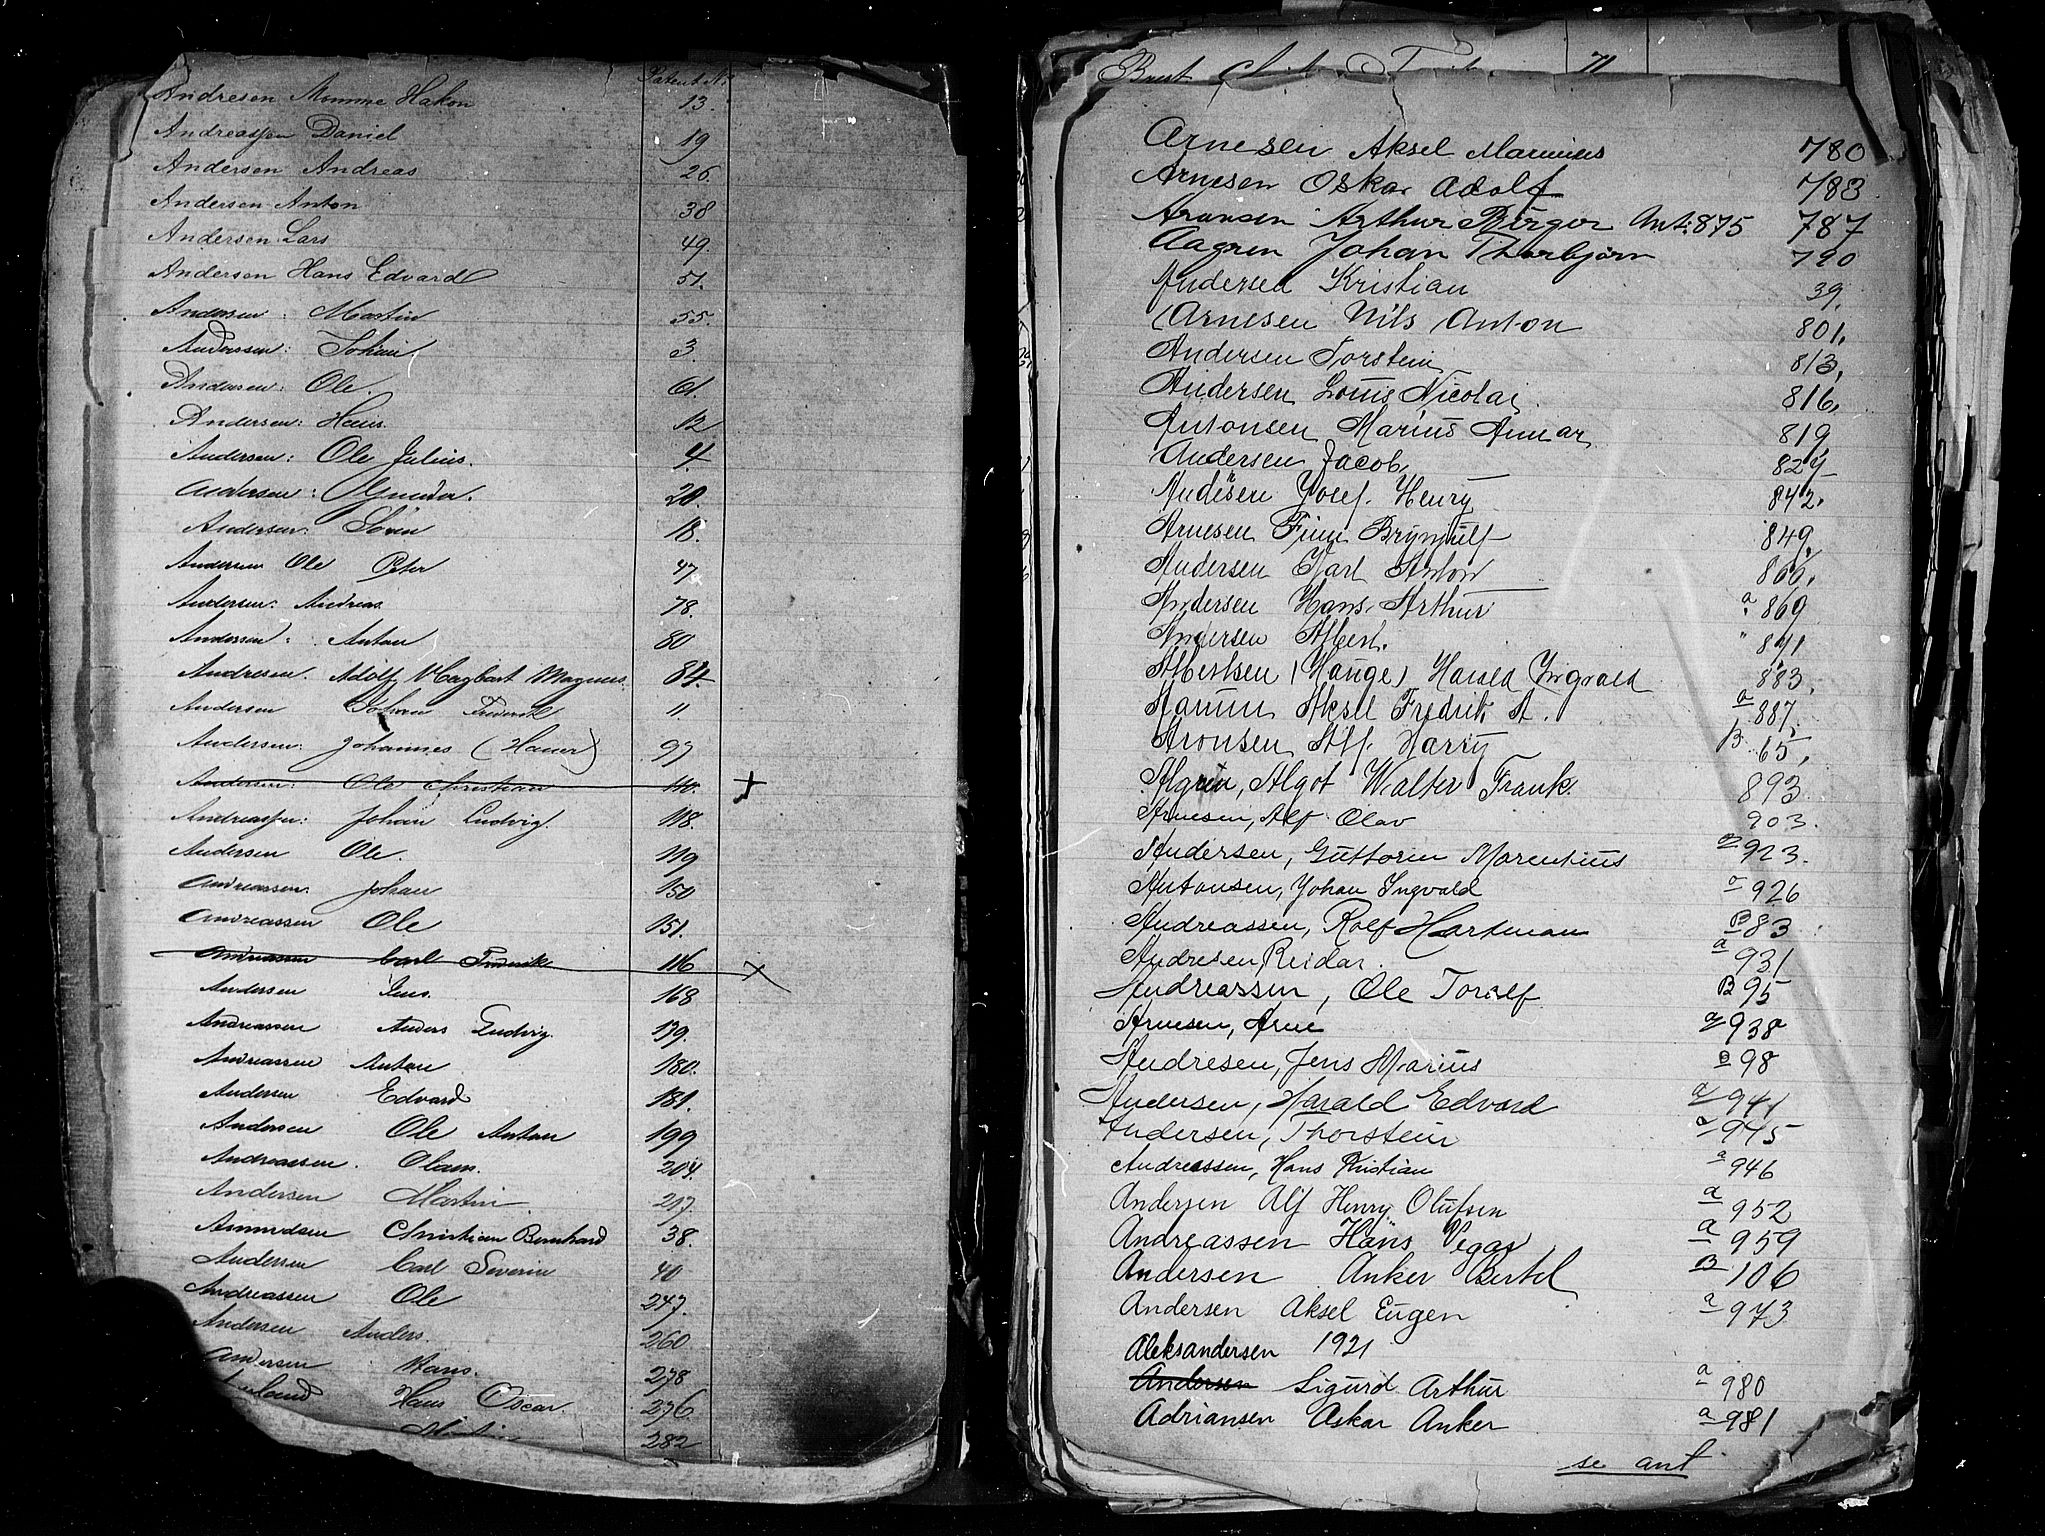 Patent Nr
Andresen Momme Hakon 13.
Andreassen Daniel 19
Andersen Andreas 26.
Andersen Anton 38
Andersen Lars 49.
Andersen Hans Edvard 51.
Andersen: Martin 55.
Anderssen: Johan 3.
Andersen: Ole. 61.
Andersen: Hans. 12
Andersen: Ole Julius. 4.
Andersen: 20.
Andersen: Sören 18.
Andersen Ole Peter 47
Andersen: Andreas. 78.
Andersen: Anton 80
Andresen. Adolf Hagbart Magnus 84.
Andersen Johan Frederik 11.
Andersen: Johannes (Hauer) 97
Andersen: Ole Christian 40. +
Andreassen: Johan Ludvig. 118.
Andersen Ole. 119
Andreassen. Johan 150
Andreassen Ole 151.
Andreassen Carl Fredrik 116 x
Andersen Jens. 168
Andreassen Anders Ludvig. 139.
Andreassen Anton 180.
Andersen Edvard 181.
Andersen Ole Anton 199
Andreassen. Olam. 204.
Andersen Martin. 217.
Amundsen Christian Bernhard 38.
Andersen Carl Severin 40
Andreassen Ole 247.
Andersen Anders. 260
Andersen Hans. 278
Hans Oscar. 276.
282
71
Arnesen Aksel Marinius 780
Arnesen Oskar Adolf 783
Aronsen Arthur Birger Ant: 875 787
Aagren Johan Thorbjørn 790
Andersen Kristian 39,
Arnesen Nils Anton 801,
Andersen Torstein 813,
Andersen Louis Nicolai 816,
Antonsen Marius Annar 819,
Andersen Jacob, 824
Andersen Josef. Henry 842.
Arnesen Finn Brynjulf 849,
Andersen Karl Anton 866,
Andersen Hans. Arthur a. 869
Andersen Albert. " 871
Albertsen (Hauge) Harald Ingvald 883,
Aamun Aksel Fredrik A. a 887,
Aronsen Alf. Harry B. 65,
Algren, Algot Walter Frank. 893
Arnesen, Alf Olav 903.
Andersen, Guttorm Marentius a 923.
Antonsen, Johan Ingvald a 926
Andreassen, Rolf Hartman B 83
Andresen, Reidar. a 931
Andreassen, Ole Toralf B 95
Arnesen, Arne a 938
Andresen, Jens Marius B 98
Andersen, Harald Edvard a 941
Andersen, Thorstein a 945
Andreassen, Hans Kristian a 946
Andersen Alf Henry Olufsen a 952
Andreassen Hans Vegar a 959
Andersen Anker Bertel B 106
Andersen Aksel Eugen a 973
Aleksandersen 1921
Andersen Sigurd Arthur a 980
Adriansen Oskar Anker a 981
se ant